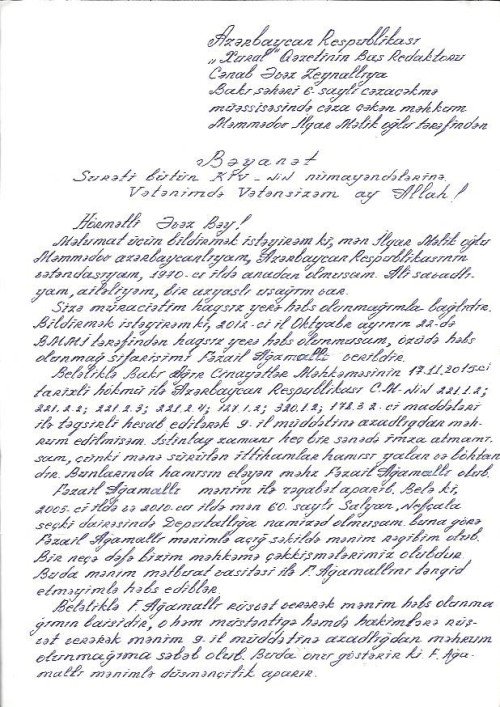 Azərbaycan Respublikası
„Xural" Qəzetinin Baş Redaktoru
Cənab Əvəz Zeynallıya
Bakı şəhəri 6 saylı cəzaçəkmə
müəssisəsində cəza çəkən məhkum
Məmmədov İlqar Məlik oğlu tərəfindən
Bəyanat
Surəti bütün KİV-NİN nümayəndələrinə.
Vətənimdə Vətənsizəm ay Allah!
Hörmətli Əvəz Bəy!
Məlumat üçün bildirmək istəyirəm ki, mən İlqar Məlik oğlu
Məmmədov azərbaycanlıyam, Azərbaycan Respublikasının
vətəndaşıyam, 1970-ci ildə anadan olmuşam. Ali savadlı-
yam, ailəliyəm, bir azyaşlı uşağım var.
Sizə müraciətim haqsız yerə həbs olunmağımla bağlıdır.
Bildirmək istəyirəm ki, 2012-ci il Oktyabr ayının 22-də
tərəfindən haqsız yerə həbs olunmuşam, özüdə həbs
olunmağ sifarişimi Fəzail Ağamallı verildir.
Beləliklə Bakı Ağır Cinayətlər Məhkəməsinin 17.11.2015-ci
tarixli hökmü ilə Azərbaycan Respublikası C.M-NİN 221.1.2;
221.2.2; 221.2.3; 221.2.4; 127.1.2; 320.1.2; 178.3.2-ci maddələri
ilə təqsirli hesab edilərək 9-il müddətinə azadlıqdan məh-
rum edilmişəm. İstintaq zamanı heç bir sənədə imza atmamı-
şam, çünki mənə sürülən ittihamlar hamısı yalan və böhtan-
dır. Bunlarında hamısın eləyən məhz Fəzail Ağamallı olub.
Fəzail Ağamallı mənim ilə rəqabət aparıb. Belə ki,
2005-ci ildə və 2010-cu ildə mən 60 saylı Salyan, Nefçala
seçki dairəsində Deputatlığa namizəd olmuşam. buna görə
Fəzail Ağamallı mənimlə açığ şəkildə mənim rəqibim olub.
Bir neçə dəfə bizim məhkəmə çəkişmələrimiz olubdur.
Buda mənim mətbuat vasitəsi ilə F. Ağamallını tənqid
etməyimlə həbs ediblər.
Beləliklə F. Ağamallı rüşvət verərək mənim həbs olunma
ğımın baisidir, o həm müstəntiqə həmdə hakimlərə rüş-
vət verərək mənim 9-il müddətinə azadlığdan məhrum
olunmağıma səbəb olub. Buda onu göstərir ki F. Ağa-
mallı mənimlə düşmənçilik aparır.